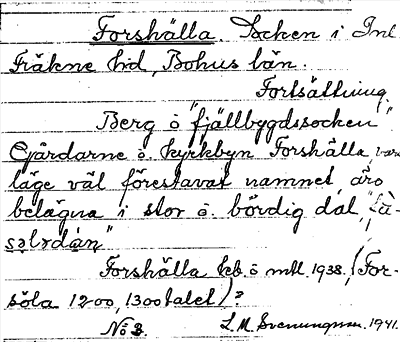 Forshälla. Socken i Inl
Fräkne hd, Bohus län.
Fortsättning.
Berg ö "fjällbygdssocken"
Gårdarne ö. kyrkbyn Forshälla, vars
läge väl förestavat namnet, äro
belägna i stor ö. bördig dal,
Forshälla kb. ö mtl. 1938. (For-
söla 1200, 1300talet)?
No 3. L. M. Svenungsson. 1941.